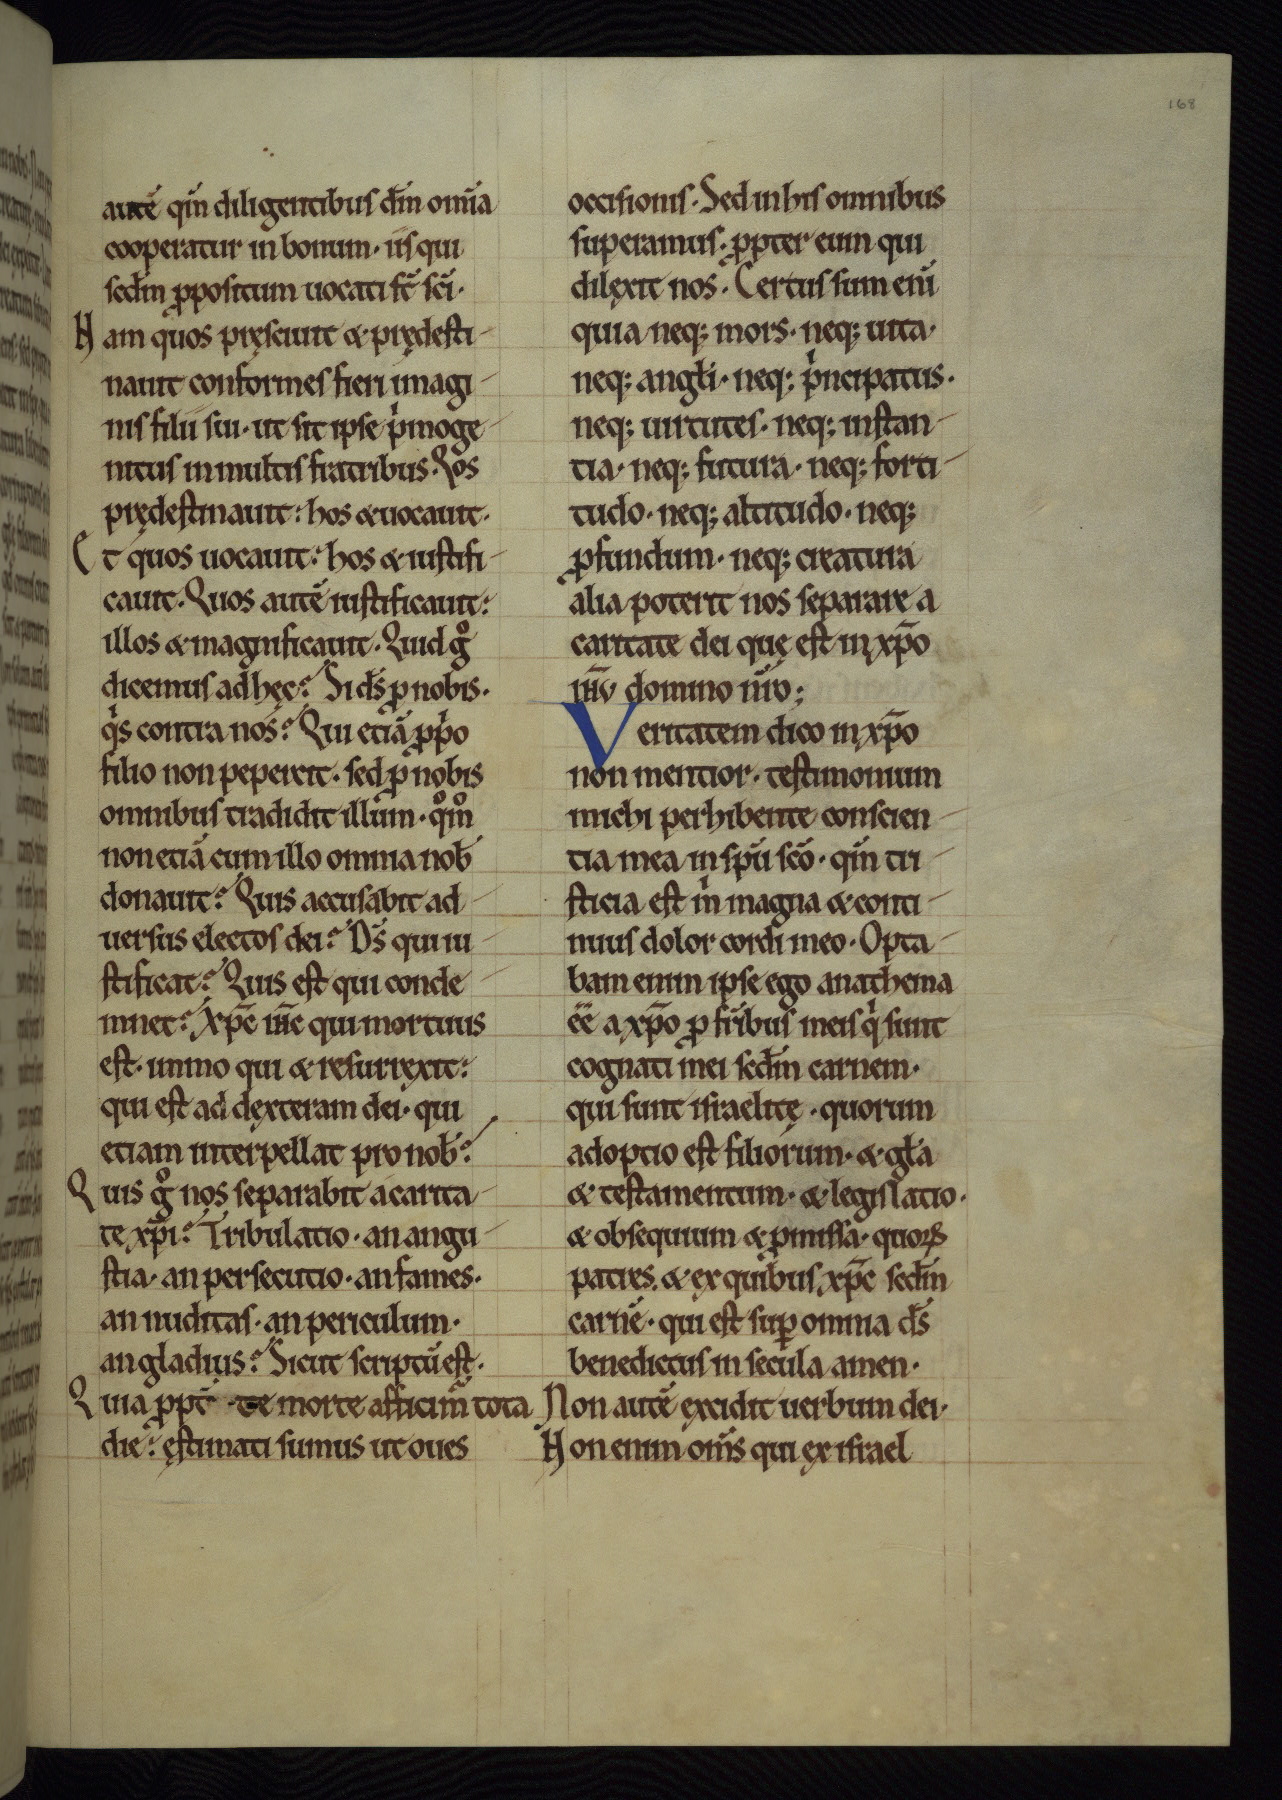 168
autē qm̄ diligentibus dm̄ om̄ia
cooperatur in bonum· iis qui
scdm̄ ꝓpositum uocati st̄ sc̄i·
Nam quos pręsciuit & prędesti-
nauit conformes fieri imagi-
nis filii sui· ut sit ipse pͥmoge-
nitus in multis fratribus· Quos
prędestinauit: hos & uocauit·
Et quos uocauit: hos & iustifi-
cauit· Quos autē iustificauit:
illos & magnificauit· Quid gͦ
dicemus ad hęc? Si ds̄ ꝓ nobis·
qͥs contra nos? Qui etiā ꝓpͥo
filio non pepercit· sed ꝓ nobis
omnibus tradidit illum· qͦmͦ
non etiā cum illo omnia nob̄
donauit? Quis accusabit ad-
uersus electos dei? Ds̄ qui iu-
stificat? Quis est qui conde-
mnet? Xp̄c ih̄c qui mortuus
est· immo qui & resurrexit:
qui est ad dexteram dei· qui
etiam interpellat pro nob̄?
Quis gͦ nos separabit a carita-
te xp̄i? Tribulatio· an angu-
stia· an persecutio· an fames·
an nuditas· an periculum·
an gladius? Sicut scriptū est·
Quia ꝓpt̄ te morte afficim̄ tota
die: ęstimati sumus ut oues
occisionis· Sed in his omnibus
superamus· ꝓpter eum qui
dilexit nos· Certus sum enī
quia neq; mors· neq; uita·
neq; angl̄i· neq; pͥncipatus·
neq; uirtutes· neq; instan-
tia· neq; futura· neq; forti-
tudo· neq; altitudo· neq;
ꝓfundum· neq; creatura
alia poterit nos separare a
caritate dei quę est in xp̄o
ih̄u domino nr̄o;
Veritatem dico in xp̄o
non mentior· testimonium
michi perhibente conscien-
tia mea in spū scō· qm̄ tri-
sticia est mͥ magna & conti-
nuus dolor cordi meo· Opta-
bam enim ipse ego anathema
ēē a xp̄o ꝓ fr̄ibus meis qͥ sunt
cognati mei scdm̄ carnem·
qui sunt israelitę· quorum
adoptio est filiorum· & gl̄a
& testamentum· & legislatio·
& obsequium & ꝓmissa· quoꝝ
patres· & ex quibus xp̄c scdm̄
carnē· qui est suꝑ omnia ds̄
benedictus in secula amen·
Non autē excidit uerbum dei·
Non enim om̄s qui ex israel